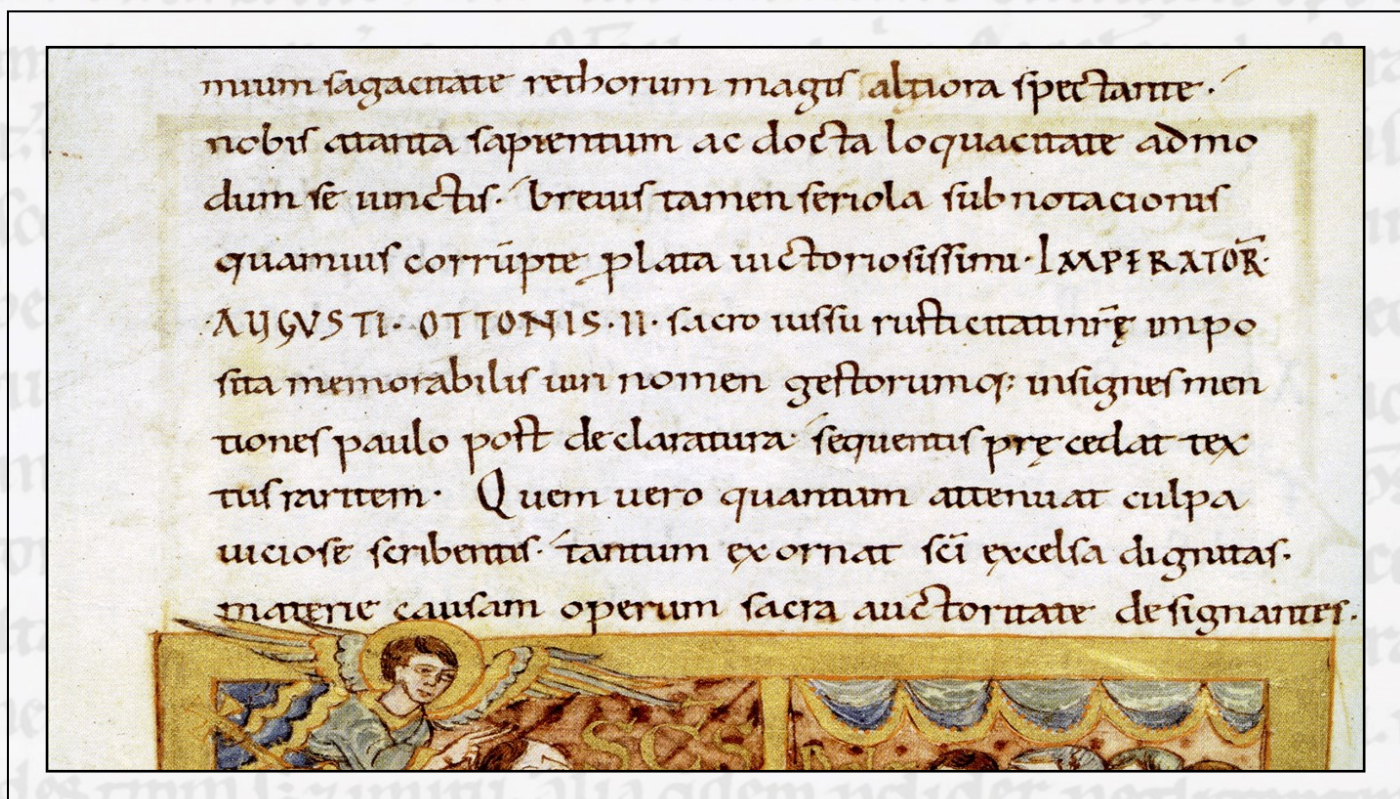 mium sagacitate rethorum magis altiora spectante.
nobis atanta sapientum ac docta loquacitate admo
dum se iunctis. breuis tamen seriola subnotacionis
quamuis corrūpte plata uictoriosissimi. IMPERATOR̄.
AUGUSTI. OTTONIS. II. sacro iussu rusticitati nr̄ę impo
sita memorabilis uiri nomen gestorumq; insignes men
tiones paulo post declaratura sequentis prę cedat tex
tus raritem. Quem uero quantum attenuat culpa
uiciose scribentis. tantum ex ornat sc̄i excelsa dignitas.
materie causam operum sacra auctoritate designantes.
SCS